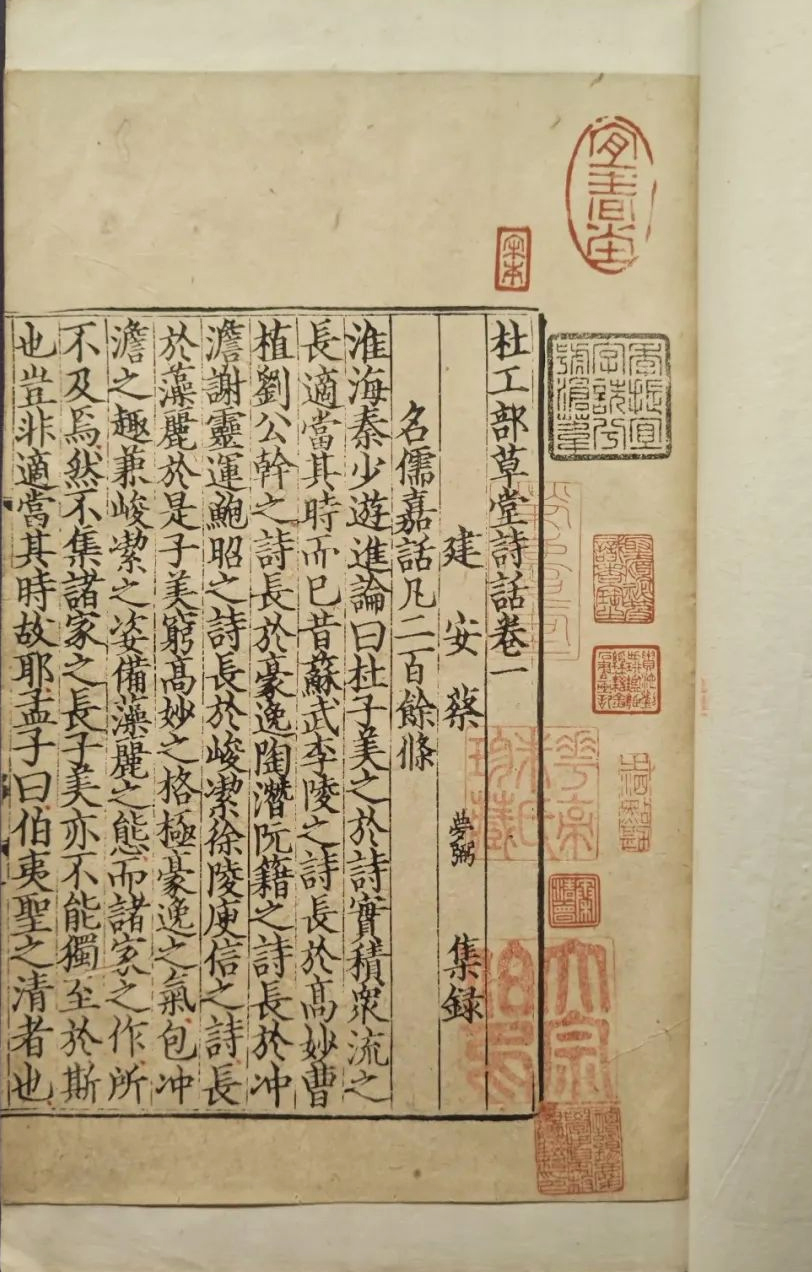 杜工部草堂詩話卷一
建安蔡夢弼集録
名儒嘉話凡二百餘條
淮海秦少遊進論曰杜子美之於詩實積衆流之
長適當其時而已昔蘇武李陵之詩長於髙妙曹
植劉公幹之詩長於豪逸陶潛阮籍之詩長於冲
澹謝靈運鮑昭之詩長於峻潔徐陵庾信之詩長
於藻麗於是子美窮髙妙之格極豪逸之氣包冲
澹之趣兼峻潔之姿備藻麗之態而諸家之作所
不及焉然不集諸家之長子美亦不能獨至於斯
也豈非適當其時故耶孟子曰伯夷聖之清者也
宋本